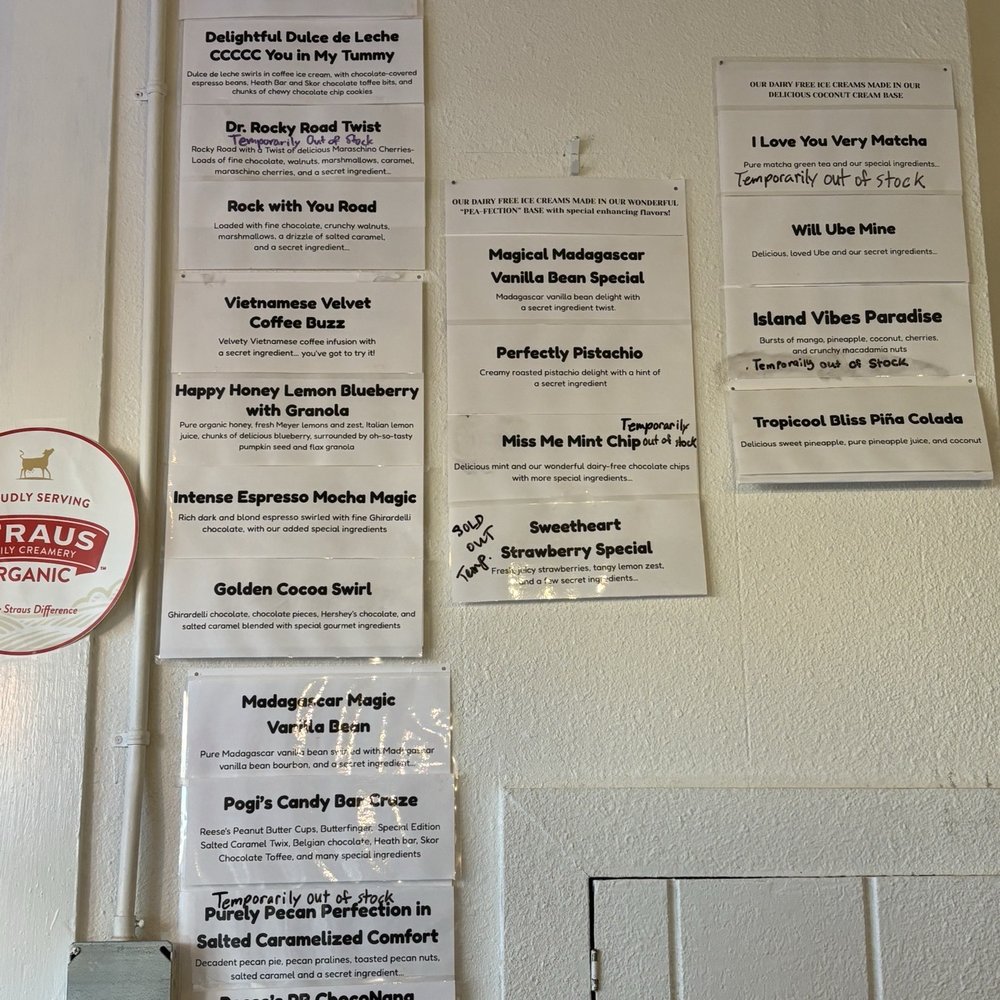 Delightful Dulce de Leche
CCCCC You in My Tummy
Dulce de leche swirls in coffee ice cream, with chocolate-covered
espresso beans, Heath Bar and Skor chocolate toffee bits, and
chunks of chewy chocolate chip cookies
Dr. Rocky Road Twist
Temporarily Out of Stock
Rocky Road with a Twist of delicious Maraschino Cherries-
Loads of fine chocolate, walnuts, marshmallows, caramel,
maraschino cherries, and a secret ingredient...
Rock with You Road
Loaded with fine chocolate, crunchy walnuts,
marshmallows, a drizzle of salted caramel,
and a secret ingredient...
Vietnamese Velvet
Coffee Buzz
Velvety Vietnamese coffee infusion with
a secret ingredient... you've got to try it!
Happy Honey Lemon Blueberry
with Granola
Pure organic honey, fresh Meyer lemons and zest, Italian lemon
juice, chunks of delicious blueberry, surrounded by oh-so-tasty
pumpkin seed and flax granola
Intense Espresso Mocha Magic
Rich dark and blond espresso swirled with fine Ghirardelli
chocolate, with our added special ingredients
Golden Cocoa Swirl
Ghirardelli chocolate, chocolate pieces, Hershey's chocolate, and
salted caramel blended with special gourmet ingredients
Madagascar Magic
Vanilla Bean
Pure Madagascar vanilla bean swirled with Madagascar
vanilla bean bourbon, and a secret ingredient...
Pogi's Candy Bar Craze
Reese's Peanut Butter Cups, Butterfinger. Special Edition
Salted Caramel Twix, Belgian chocolate, Heath bar, Skor
Chocolate Toffee, and many special ingredients
Temporarily out of stock
Purely Pecan Perfection in
Salted Caramelized Comfort
Decadent pecan pie, pecan pralines, toasted pecan nuts,
salted caramel and a secret ingredient...
Reese's PB ChocoNana
OUR DAIRY FREE ICE CREAMS MADE IN OUR WONDERFUL
"PEA-FECTION" BASE with special enhancing flavors!
Magical Madagascar
Vanilla Bean Special
Madagascar vanilla bean delight with
a secret ingredient twist.
Perfectly Pistachio
Creamy roasted pistachio delight with a hint of
a secret ingredient
Temporarily
out of stock
Miss Me Mint Chip
Delicious mint and our wonderful dairy-free chocolate chips
with more special ingredients...
SOLD
OUT
Temp.
Sweetheart
Strawberry Special
Fresh juicy strawberries, tangy lemon zest,
and a few secret ingredients...
OUR DAIRY FREE ICE CREAMS MADE IN OUR
DELICIOUS COCONUT CREAM BASE
I Love You Very Matcha
Pure matcha green tea and our special ingredients...
Temporarily out of stock
Will Ube Mine
Delicious, loved Ube and our secret ingredients...
Island Vibes Paradise
Bursts of mango, pineapple, coconut, cherries,
and crunchy macadamia nuts
. Temporaily out of Stock
Tropicool Bliss Piña Colada
Delicious sweet pineapple, pure pineapple juice, and coconut
UDLY SERVING
TRAUS
ILY CREAMERY
RGANIC
™
Straus Difference